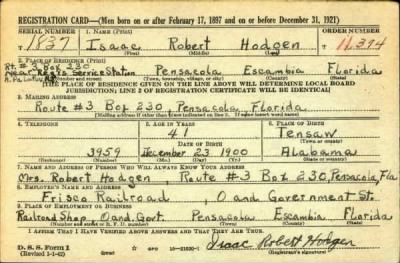 REGISTRATION CARD—(Men born on or after February 17, 1897 and on or before December 31, 1921)
SERIAL NUMBER 1. NAME (Print) ORDER NUMBER
T 1837 Isaac Robert Hodgen 11,394
(First) (Middle) (Last)
2. PLACE OF RESIDENCE (Print)
Rt. #3 Box 230
Near Service Station Pensacola Escambia Florida
(Number and street) (Town, township, village, or city) (County) (State)
[THE PLACE OF RESIDENCE GIVEN ON THE LINE ABOVE WILL DETERMINE LOCAL BOARD
JURISDICTION; LINE 2 OF REGISTRATION CERTIFICATE WILL BE IDENTICAL]
3. MAILING ADDRESS
Route #3 Box 230, Pensacola, Florida
[Mailing address if other than place indicated on line 2. If same insert word same]
4. TELEPHONE 5. AGE IN YEARS 6. PLACE OF BIRTH
41 Tensaw
DATE OF BIRTH (Town or county)
3959 December 23 1900 Alabama
(Exchange) (Number) (Mo.) (Day) (Yr.) (State or country)
7. NAME AND ADDRESS OF PERSON WHO WILL ALWAYS KNOW YOUR ADDRESS
Mrs. Robert Hodgen, Route #3 Box 230, Pensacola, Fla
8. EMPLOYER'S NAME AND ADDRESS
Frisco Railroad, O and Government St.
9. PLACE OF EMPLOYMENT OR BUSINESS
Railroad Shop O and. Govt. Pensacola Escambia Florida
(Number and street or R. F. D. number) (Town) (County) (State)
I AFFIRM THAT I HAVE VERIFIED ABOVE ANSWERS AND THAT THEY ARE TRUE.
D. S. S. Form 1
(Revised 1-1-42) (over) Isaac Robert Hodgen